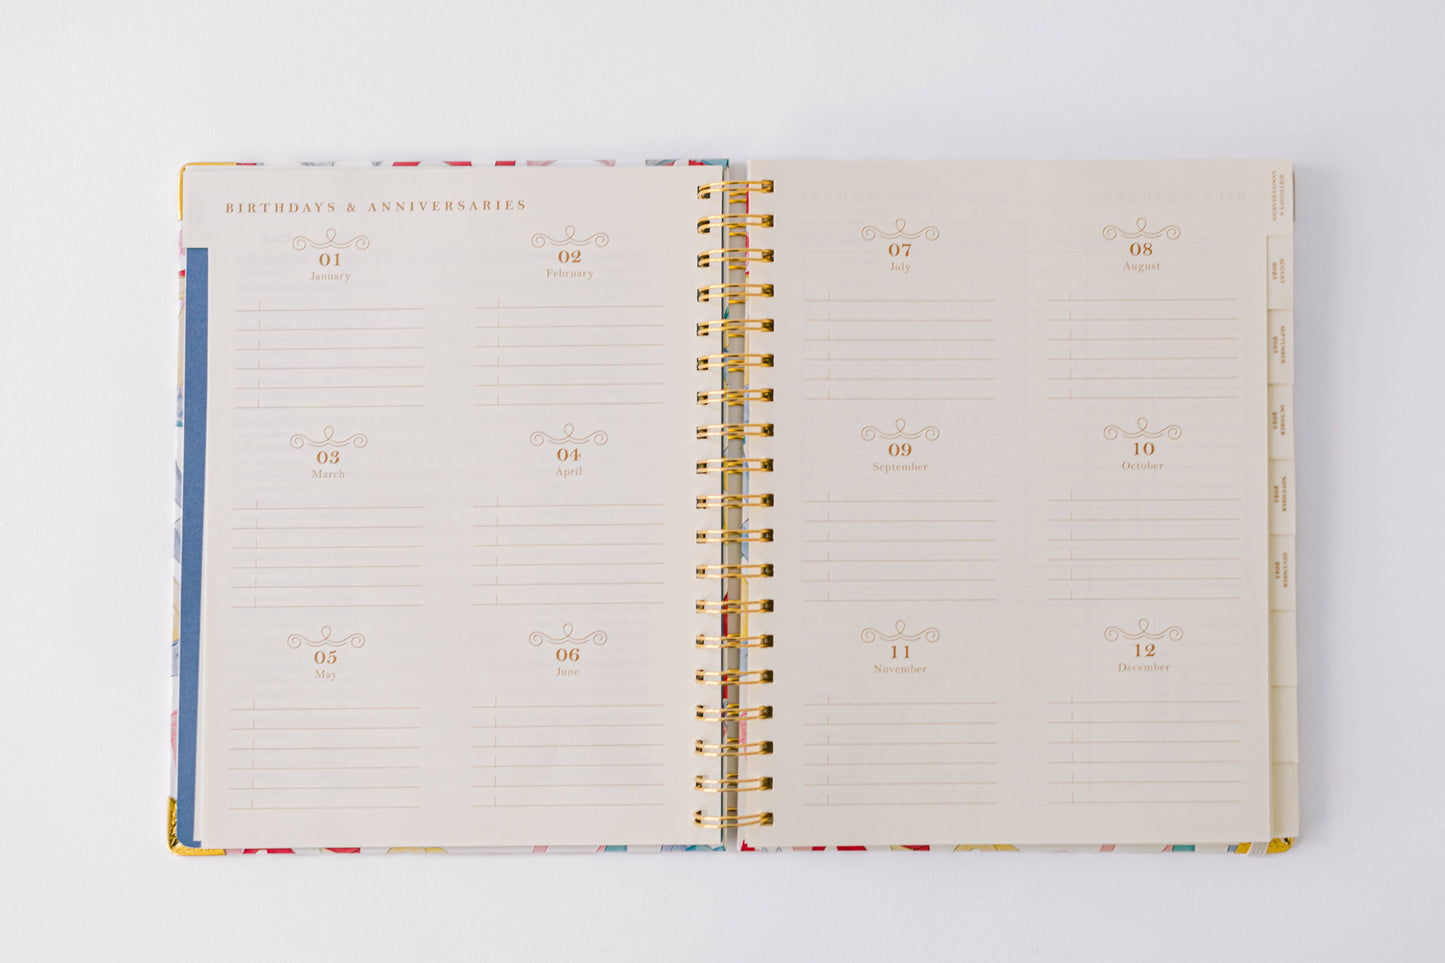 BIRTHDAYS & ANNIVERSARIES
01
January
02
February
03
March
04
April
05
May
06
June
07
July
08
August
09
September
10
October
11
November
12
December
BIRTHDAYS &
ANNIVERSARIES
AUGUST
2023
SEPTEMBER
2023
OCTOBER
2023
NOVEMBER
2023
DECEMBER
2023